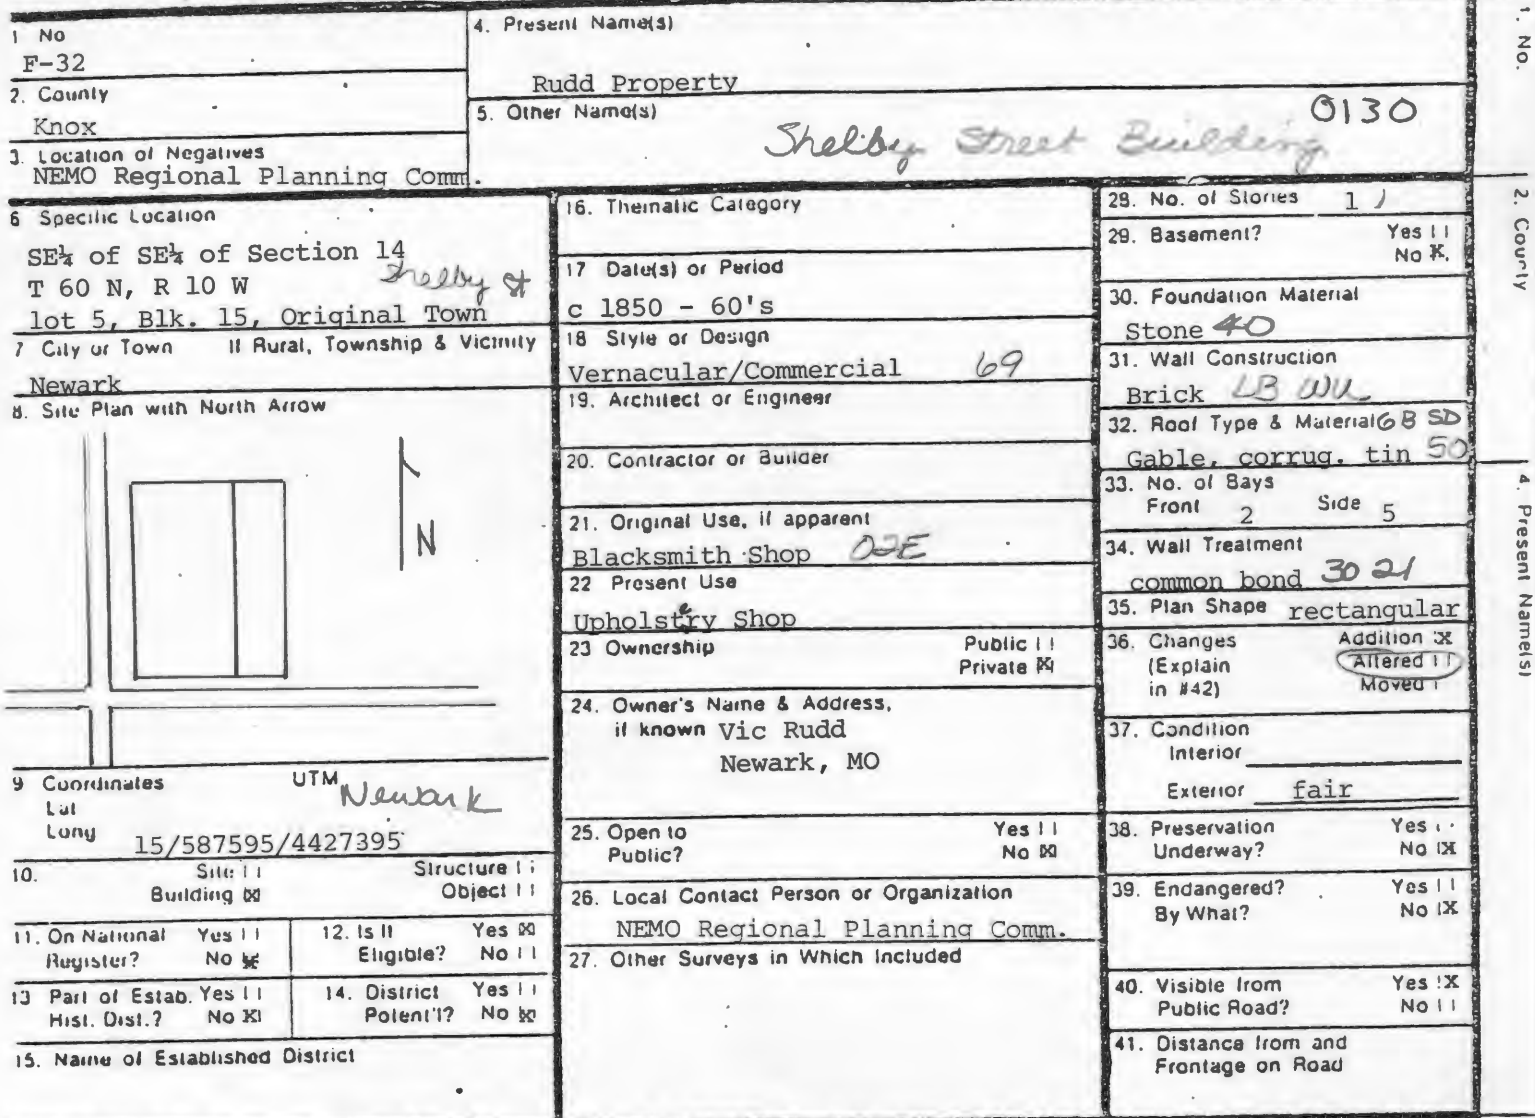 1 No
F-32
2. County
Knox
3. Location of Negatives
NEMO Regional Planning Comm.
4. Present Name(s)
Rudd Property
5. Other Name(s)
0130
Shelby Street Building
6 Specific Location
SE¼ of SE¼ of Section 14
T 60 N, R 10 W
Shelby St
lot 5, Blk. 15, Original Town
7 City or Town If Rural, Township & Vicinity
Newark
8. Site Plan with North Arrow
N
9 Coordinates UTM
Newark
Lat
Long
15/587595/4427395
10. Site Structure
Building X Object
11. On National Register? Yes No X
12. Is It Eligible? Yes X No
13 Part of Estab. Hist. Dist.? Yes No X
14. District Potent'l? Yes No X
15. Name of Established District
16. Thematic Category
17 Date(s) or Period
c 1850 - 60's
18 Style or Design
Vernacular/Commercial 69
19. Architect or Engineer
20. Contractor or Builder
21. Original Use, if apparent
Blacksmith Shop 02E
22 Present Use
Upholstery Shop
23 Ownership Public
Private X
24. Owner's Name & Address,
if known Vic Rudd
Newark, MO
25. Open to Yes
Public? No X
26. Local Contact Person or Organization
NEMO Regional Planning Comm.
27. Other Surveys in Which Included
28. No. of Stories 1
29. Basement? Yes
No X
30. Foundation Material
Stone 40
31. Wall Construction
Brick LB WU
32. Roof Type & Material GB SD
Gable, corrug. tin 50
33. No. of Bays
Front 2 Side 5
34. Wall Treatment
common bond 30 21
35. Plan Shape rectangular
36. Changes Addition X
(Explain Altered
in #42) Moved
37. Condition
Interior
Exterior fair
38. Preservation Yes
Underway? No X
39. Endangered? Yes
By What? No X
40. Visible from Yes X
Public Road? No
41. Distance from and
Frontage on Road
1. No.
2. County
4. Present Name(s)